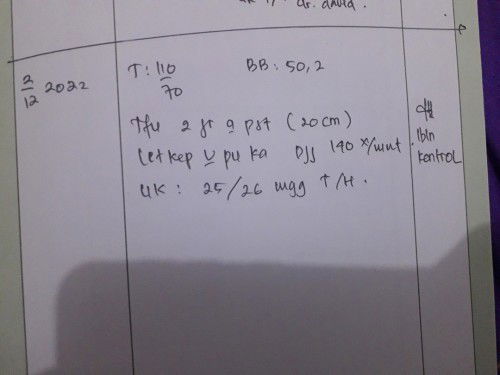 dr. david.
2/12 2022
T: 110/70 BB: 50,2
Tfu 2 jr a pst (20 cm)
Let kep U pu ka Djj 140 x/mnt.
UK: 25/26 mgg T/H.
1 bln
kontrol